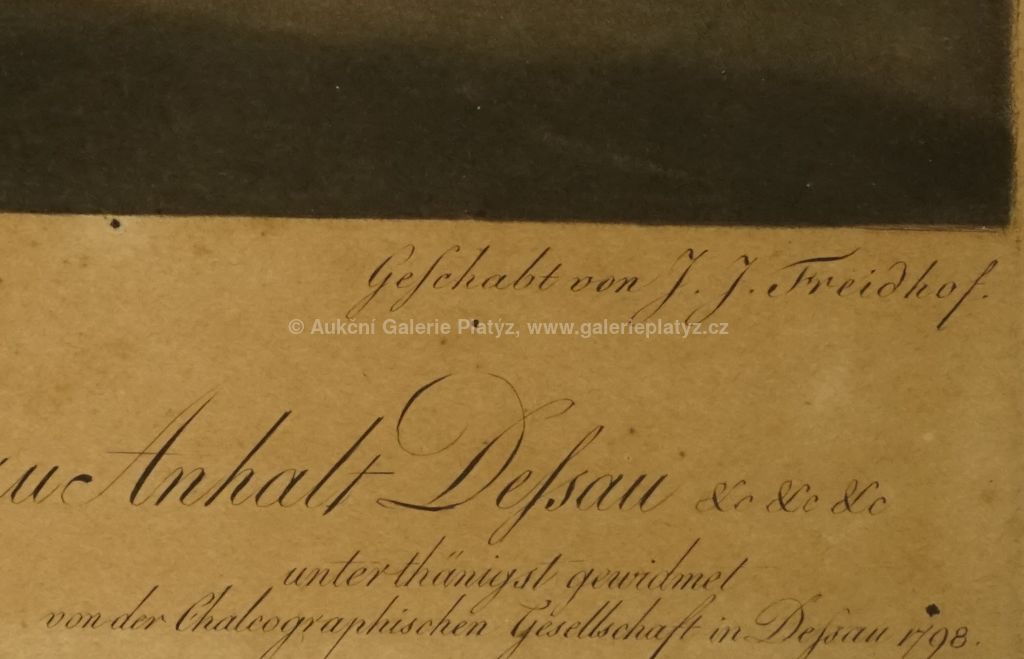 Geſchabt von J. J. Freidhof.
© Aukční Galerie Platýz, www.galerieplatyz.cz
Anhalt Deſsau &c &c &c
unterthänigst gewidmet
von der Chalcographischen Gesellschaft in Deſsau 1798.